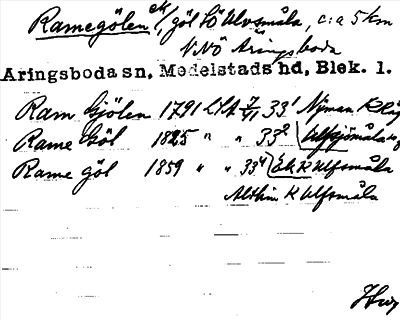 Ramegölen ek, göl SÖ Ulvsmåla, c:a 5 km
NNÖ Aringsboda
Aringsboda sn, Medelstads hd, Blek. l.
Ram Gjölen 1791 LSA 33¹ Nyman K
Rame Göl 1825 " " 33² Ulfsjömåla
Rame göl 1859 " " 33⁴ Ek K Ulfsmåla
K Ulfsmåla